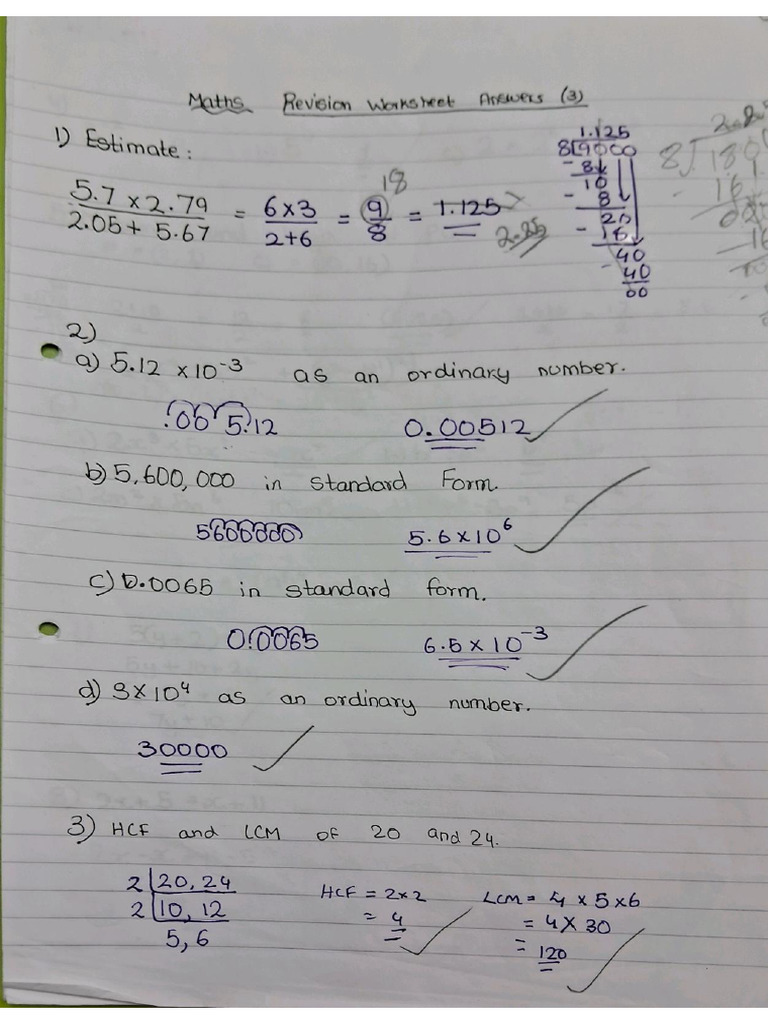 Maths Revision Worksheet Answers (3)
1) Estimate:
5.7 × 2.79 / 2.05 + 5.67 = 6×3 / 2+6 = 9/8 = 1.125
18
2.25
1.125
8 9000
- 8
10
- 8
20
- 16
40
- 40
00
8 180
- 16
2)
a) 5.12 × 10⁻³ as an ordinary number.
.005.12 0.00512
b) 5,600,000 in standard Form.
5600000 5.6×10⁶
c) 0.0065 in standard form.
0.0065 6.5 × 10⁻³
d) 3×10⁴ as an ordinary number.
30000
3) HCF and LCM of 20 and 24.
2 20, 24 HCF = 2×2 LCM = 4 × 5 × 6
2 10, 12 = 4 = 4 × 30
5, 6 = 120